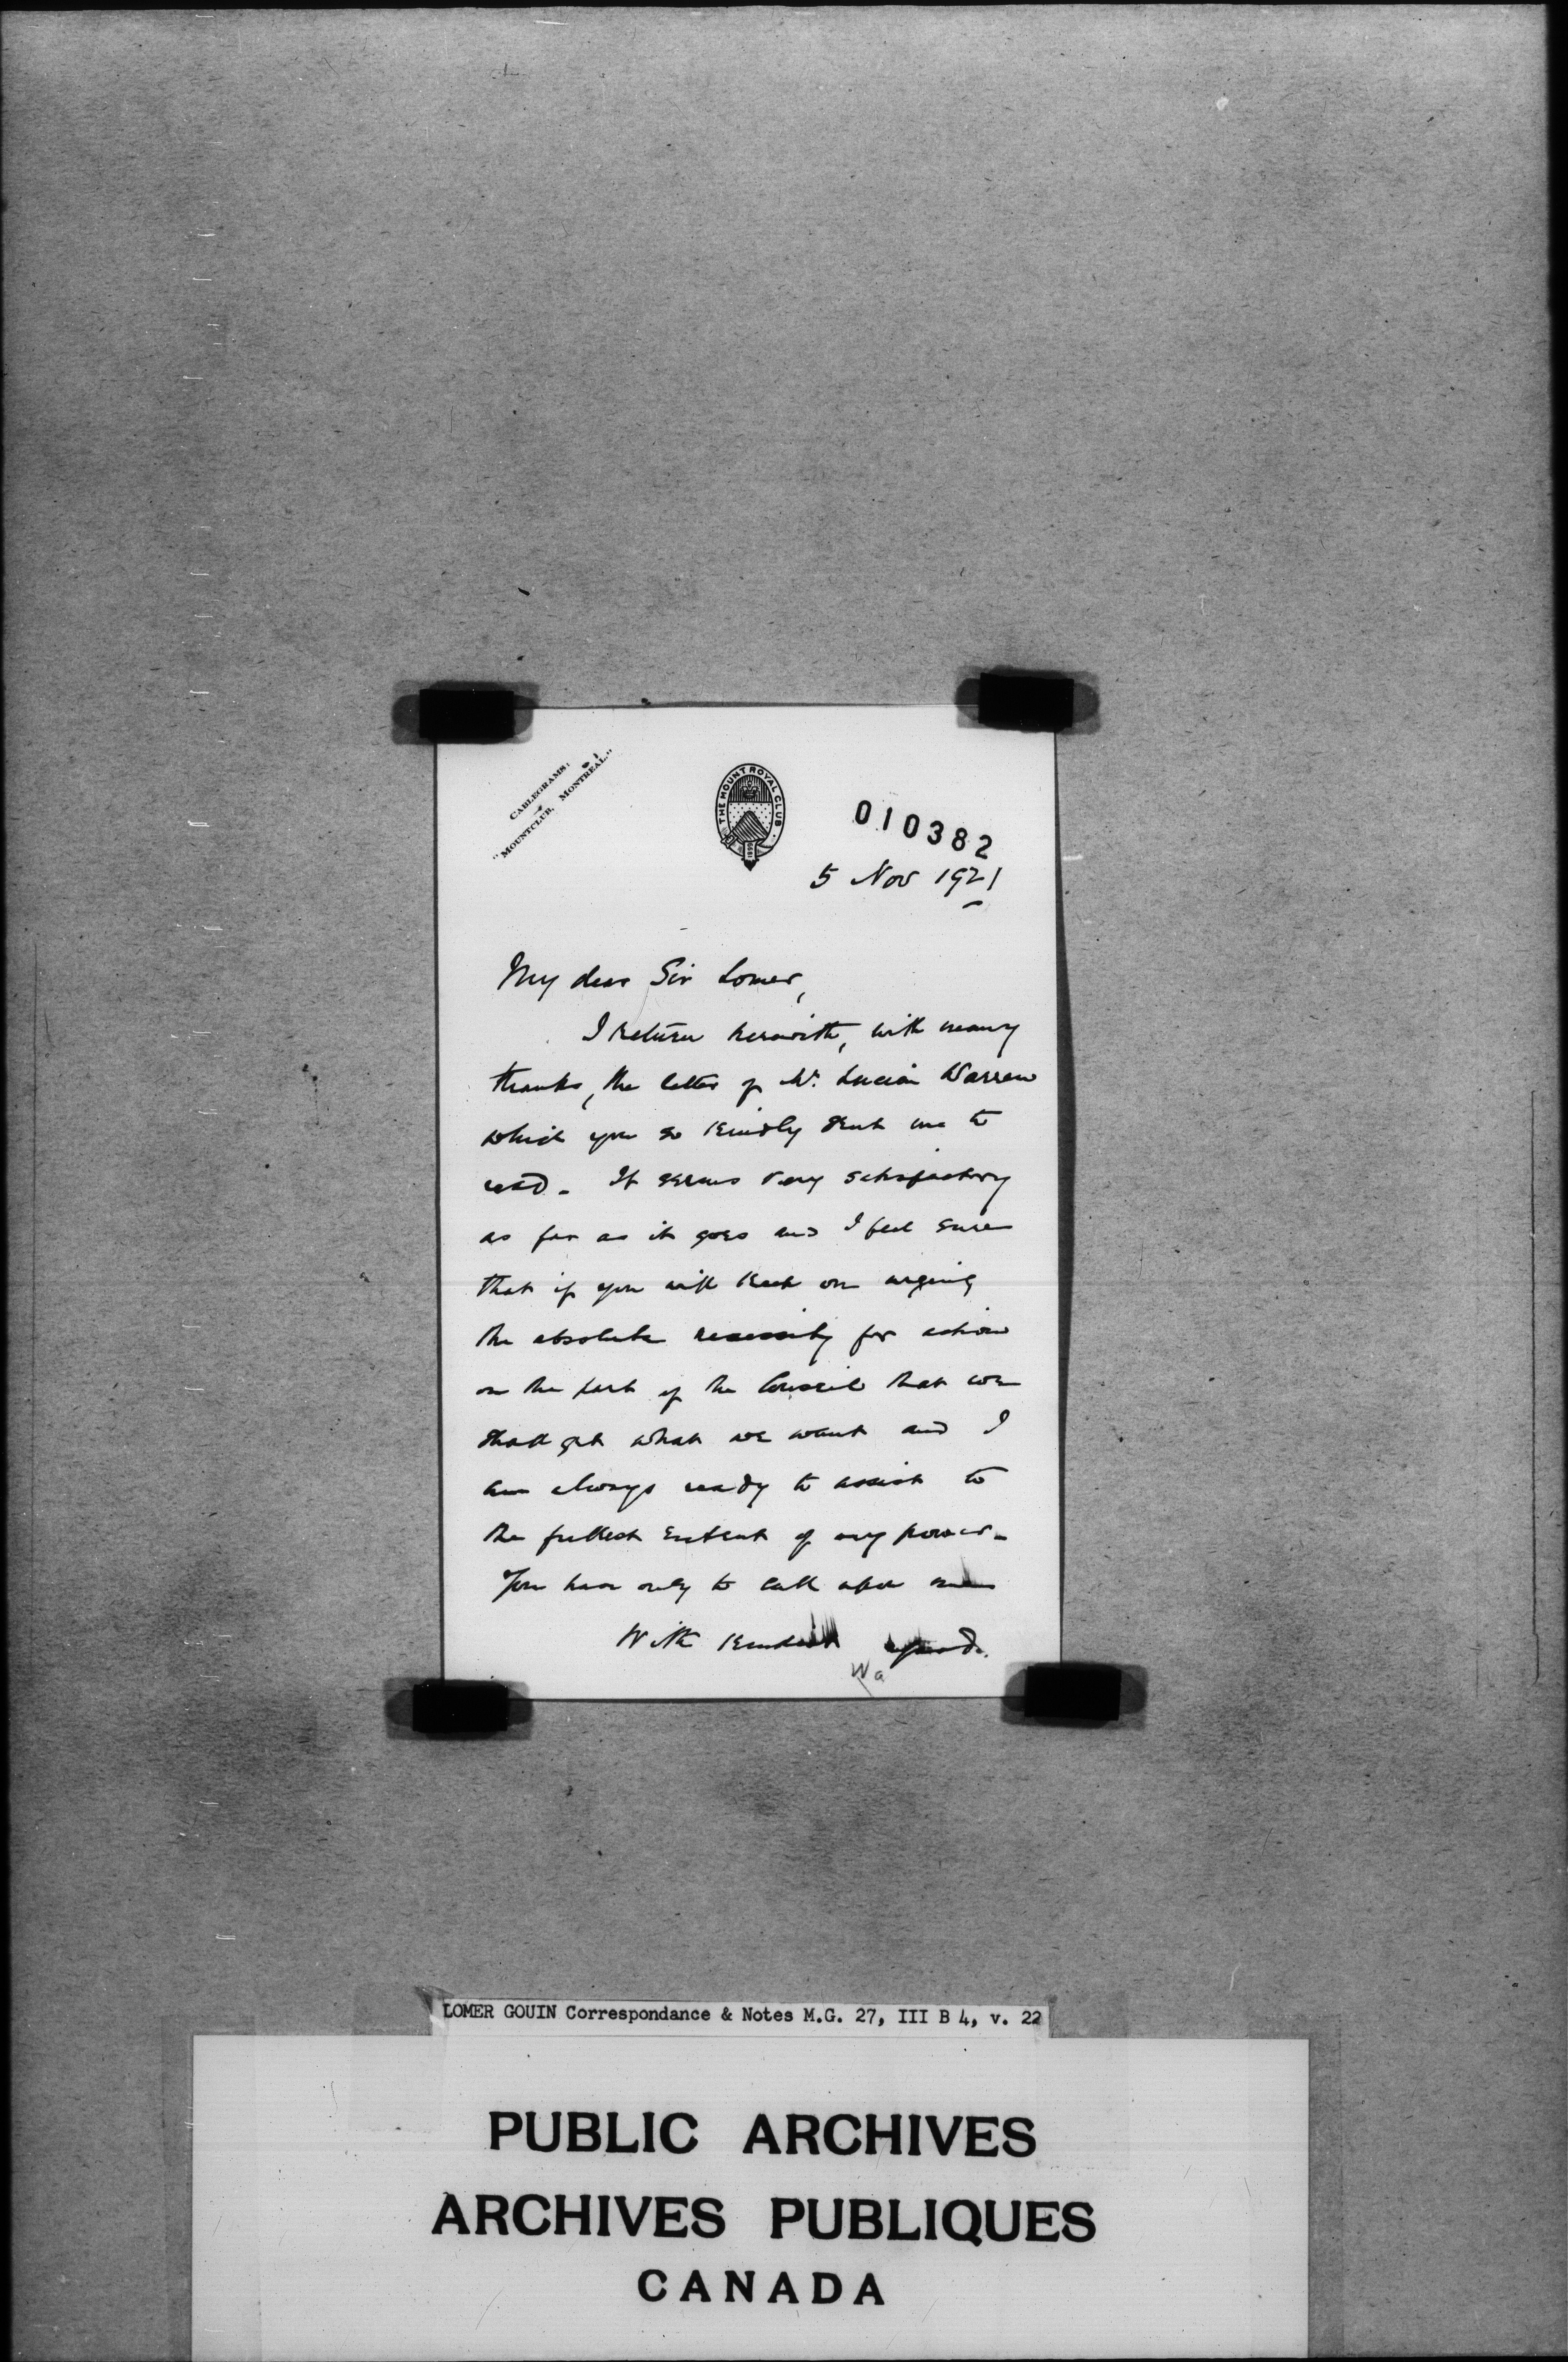 CABLEGRAMS:
"MOUNTCLUB, MONTREAL."
THE MOUNT ROYAL CLUB
010382
5 Nov 1921
My dear Sir Lomer,
I return herewith, with many
thanks, the letter of Mr. Lucian Warren
which you so kindly sent me to
read. It seems very satisfactory
as far as it goes and I feel sure
that if you will keep on urging
the absolute necessity for action
on the part of the Council that we
shall get what we want and I
am always ready to assist to
the fullest extent of my power.
You have only to call upon me
With kindest regards.
LOMER GOUIN Correspondance & Notes M.G. 27, III B 4, v. 22
PUBLIC ARCHIVES
ARCHIVES PUBLIQUES
CANADA